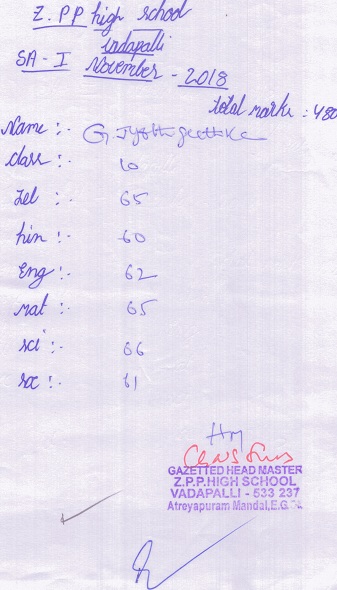 Z.PP high school
Vadapalli
SA - I November - 2018
total marks : 480
Name :- G Jyothi geethika
class :- 10
tel :- 65
hin :- 60
Eng :- 62
mat :- 65
sci :- 66
soc :- 61
Hm
GAZETTED HEAD MASTER
Z.P.P.HIGH SCHOOL
VADAPALLI - 533 237
Atreyapuram Mandal,E.G.